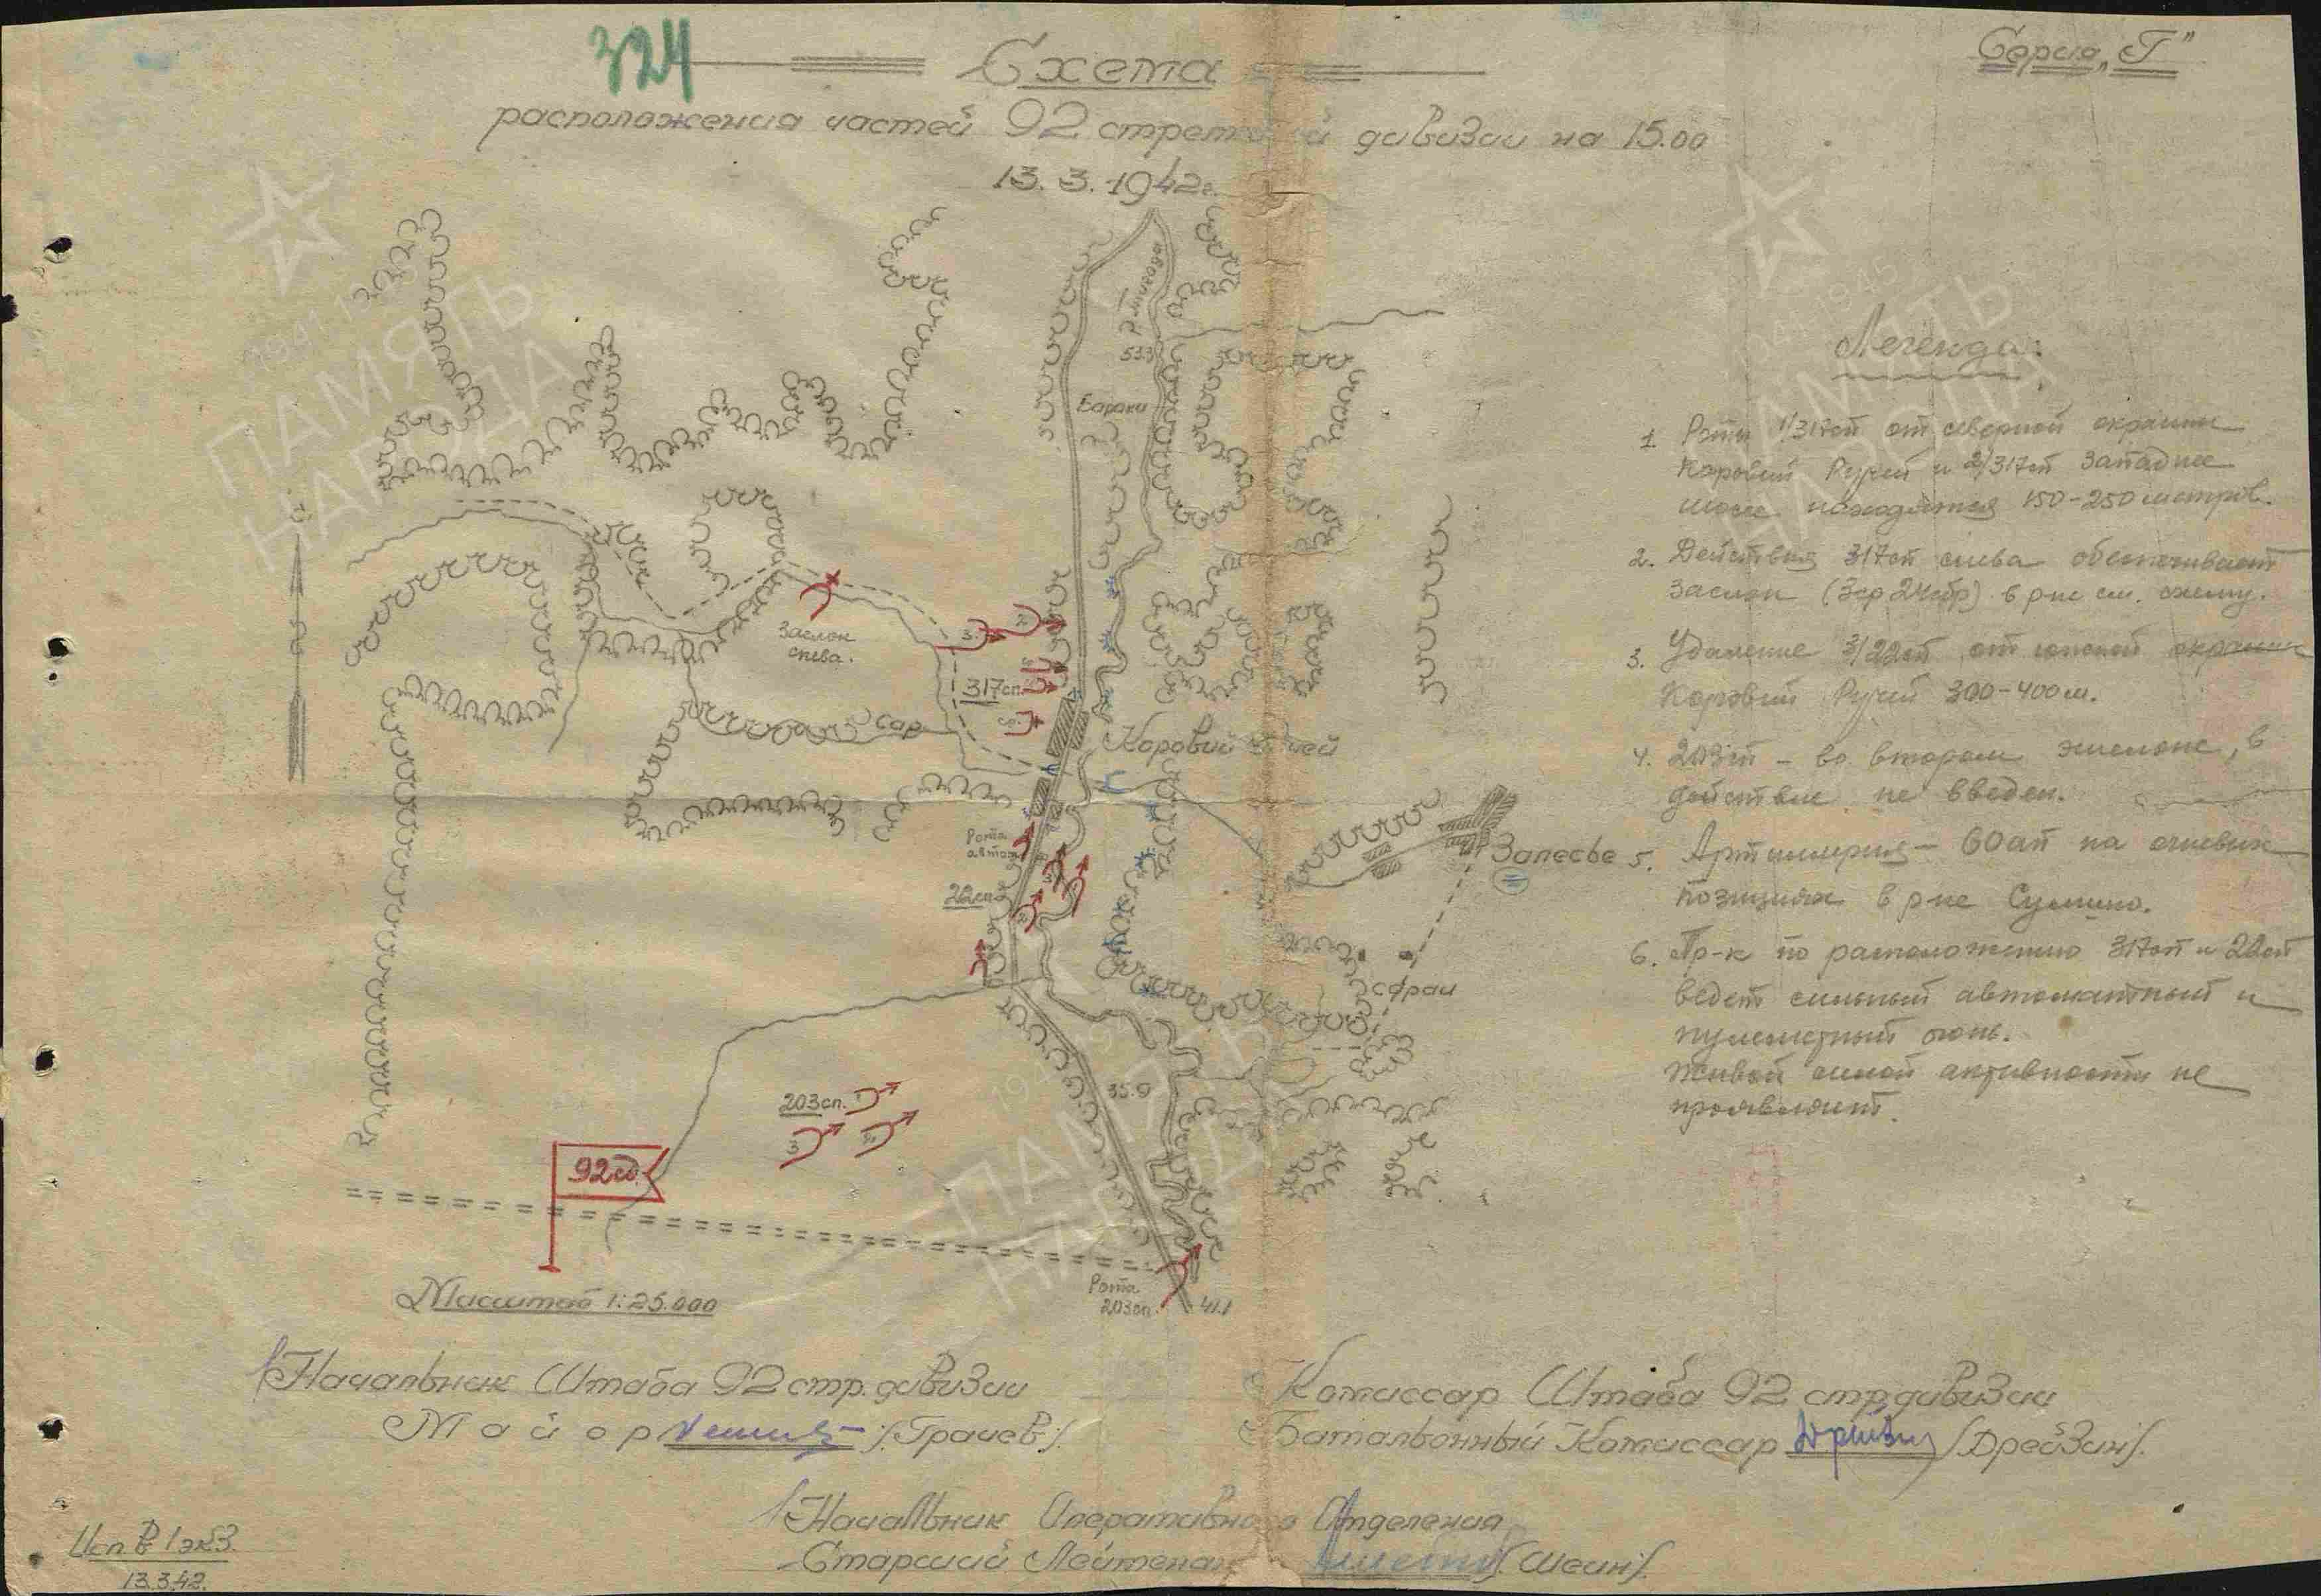 324
Схема
Серия „Г"
расположения частей 92 стрелковой дивизии на 15.00
13.3.1942г.
53.3
Бараки
Заслон
слева.
3.
2.
317сп.
ср.
сар.
Коровий Ручей
Рота
автом.
22сп
Залесье
сараи
35.9
203сп. 1
3 2
92сд.
Рота
203сп.
41.1
Масштаб 1:25.000
Легенда:
1. Роты 1/317сп от северной окраины
Коровий Ручей и 2/317сп западнее
шоссе находятся 150-250 метров.
2. Действия 317сп слева обеспечивает
заслон (3ср 24сбр) в р-не см. схему.
3. Удаление 3/22сп от южной окраины
Коровий Ручей 300-400м.
4. 203сп - во втором эшелоне, в
действие не введен.
5. Артиллерия - 60ап на огневых
позициях в р-не Сулимо.
6. Пр-к по расположению 317сп и 22сп
ведет сильный автоматный и
пулеметный огонь.
Живой силой активности не
проявляет.
Начальник Штаба 92 стр. дивизии
Майор /Грачев/.
Комиссар Штаба 92 стр. дивизии
Батальонный Комиссар /Дрейзин/.
Начальник Оперативного Отделения
Старший Лейтенант /Шеин/.
Исп. в 1 экз.
13.3.42.
ПАМЯТЬ
НАРОДА
ПАМЯТЬ
НАРОДА
ПАМЯТЬ
НАРОДА